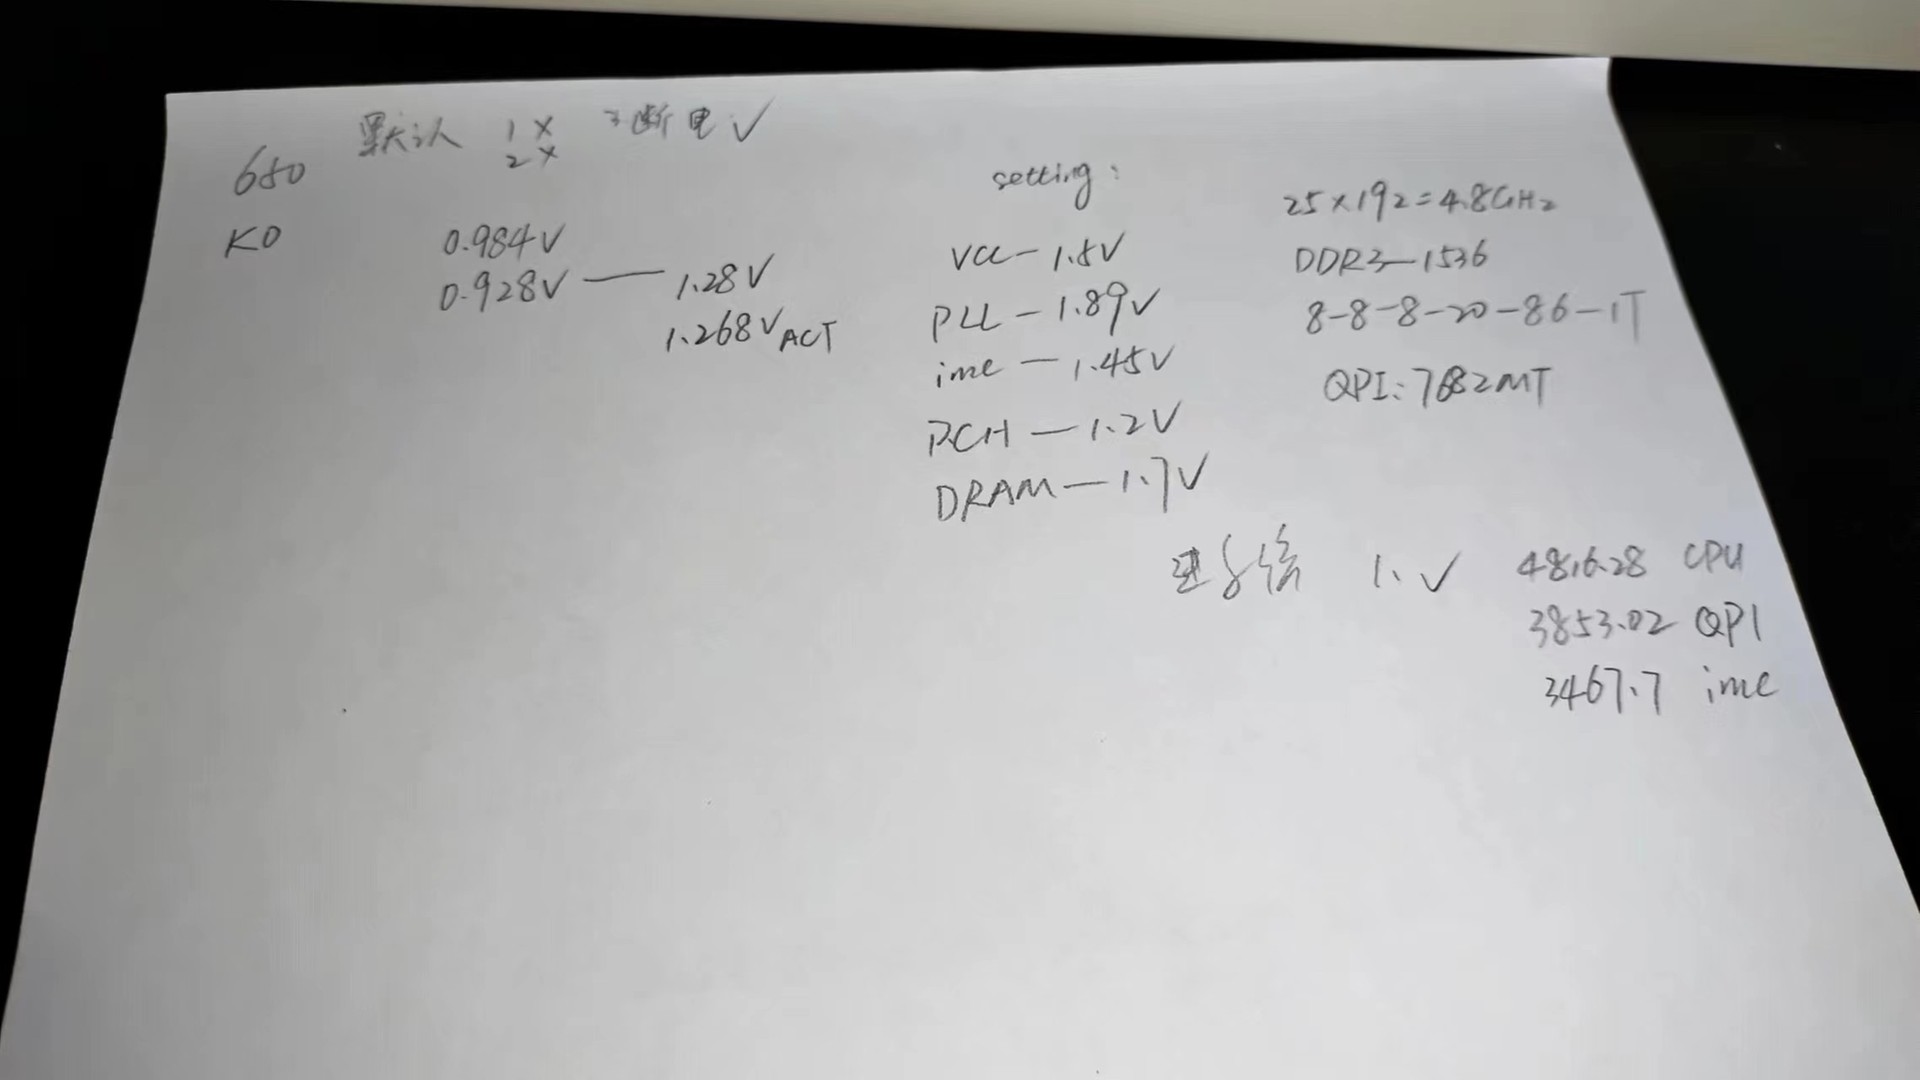 默认 1× 3断电✓
2×
650
K0
0.984V
0.928V — 1.28V
1.268V ACT
setting:
VCC — 1.5V
PLL — 1.89V
imc — 1.45V
PCH — 1.2V
DRAM — 1.7V
25×192=4.8GHz
DDR3—1536
8-8-8-20-86-1T
QPI: 7682MT
进系统 1.✓
4816.28 CPU
3853.02 QPI
3467.7 imc